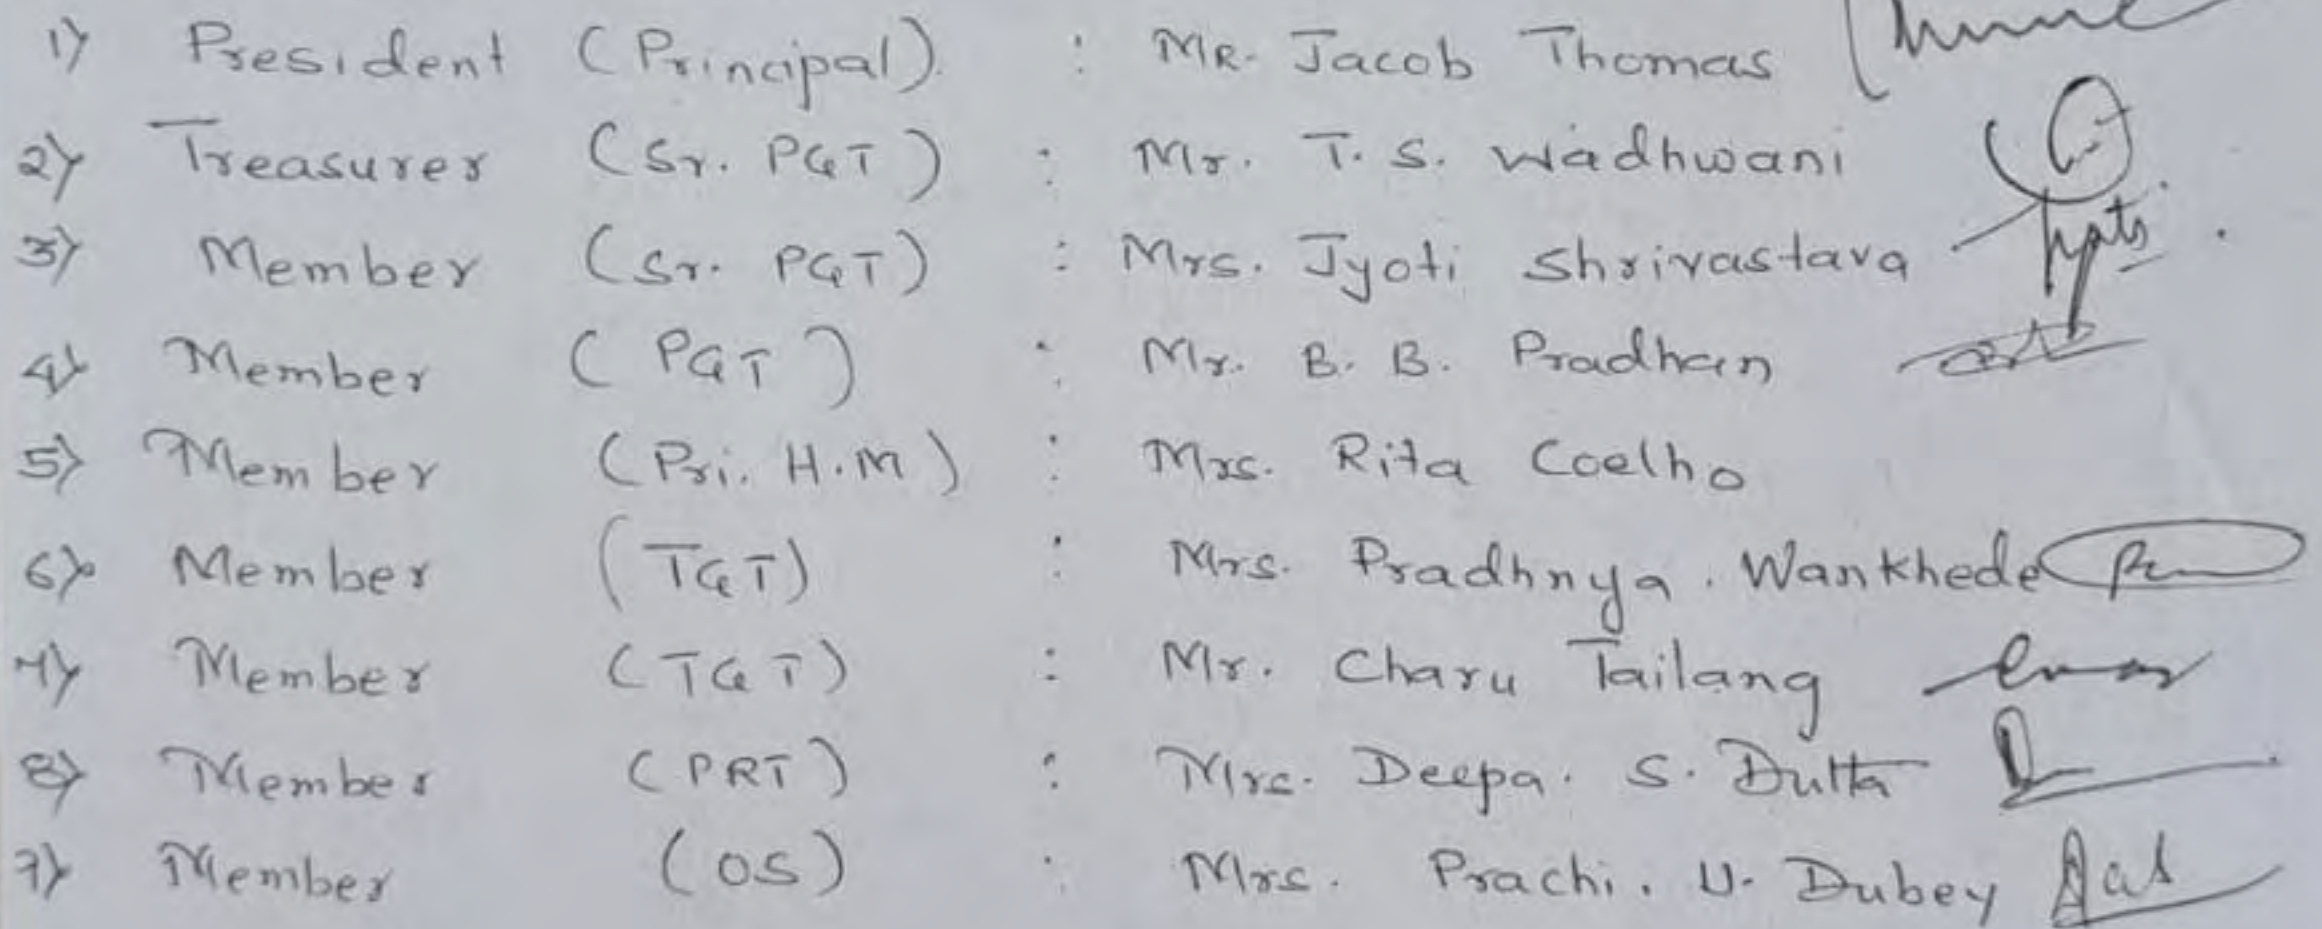 1) President (Principal) : MR. Jacob Thomas
2) Treasurer (Sr. PGT) : Mr. T. S. Wadhwani
3) Member (Sr. PGT) : Mrs. Jyoti Shrivastava
4) Member (PGT) : Mr. B. B. Pradhan
5) Member (Pri. H.M) : Mrs. Rita Coelho
6) Member (TGT) : Mrs. Pradhnya . Wankhede
7) Member (TGT) : Mr. Charu Tailang
8) Member (PRT) : Mrs. Deepa. S. Dutta
9) Member (OS) : Mrs. Prachi. U. Dubey